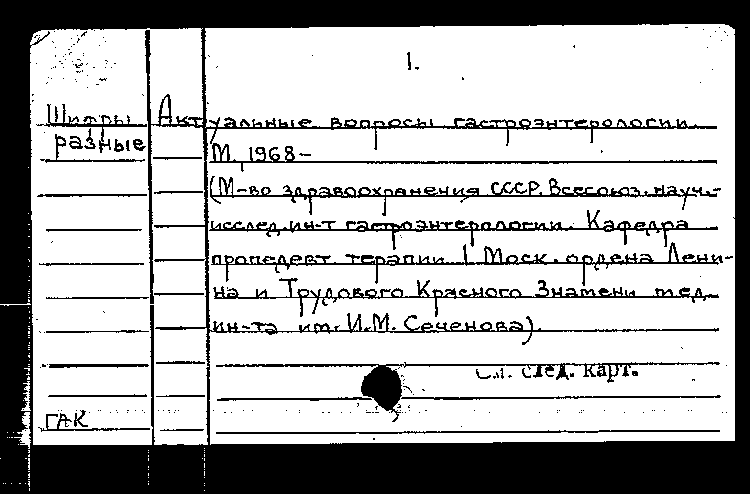 1.
Шифры разные
Актуальные вопросы гастроэнтерологии.
М., 1968–
(М-во здравоохранения СССР. Всесоюз. науч.-
исслед. ин-т гастроэнтерологии. Кафедра
пропедевт. терапии 1 Моск. ордена Лени-
на и Трудового Красного Знамени мед.
ин-та им. И.М. Сеченова).
См. след. карт.
ГАК